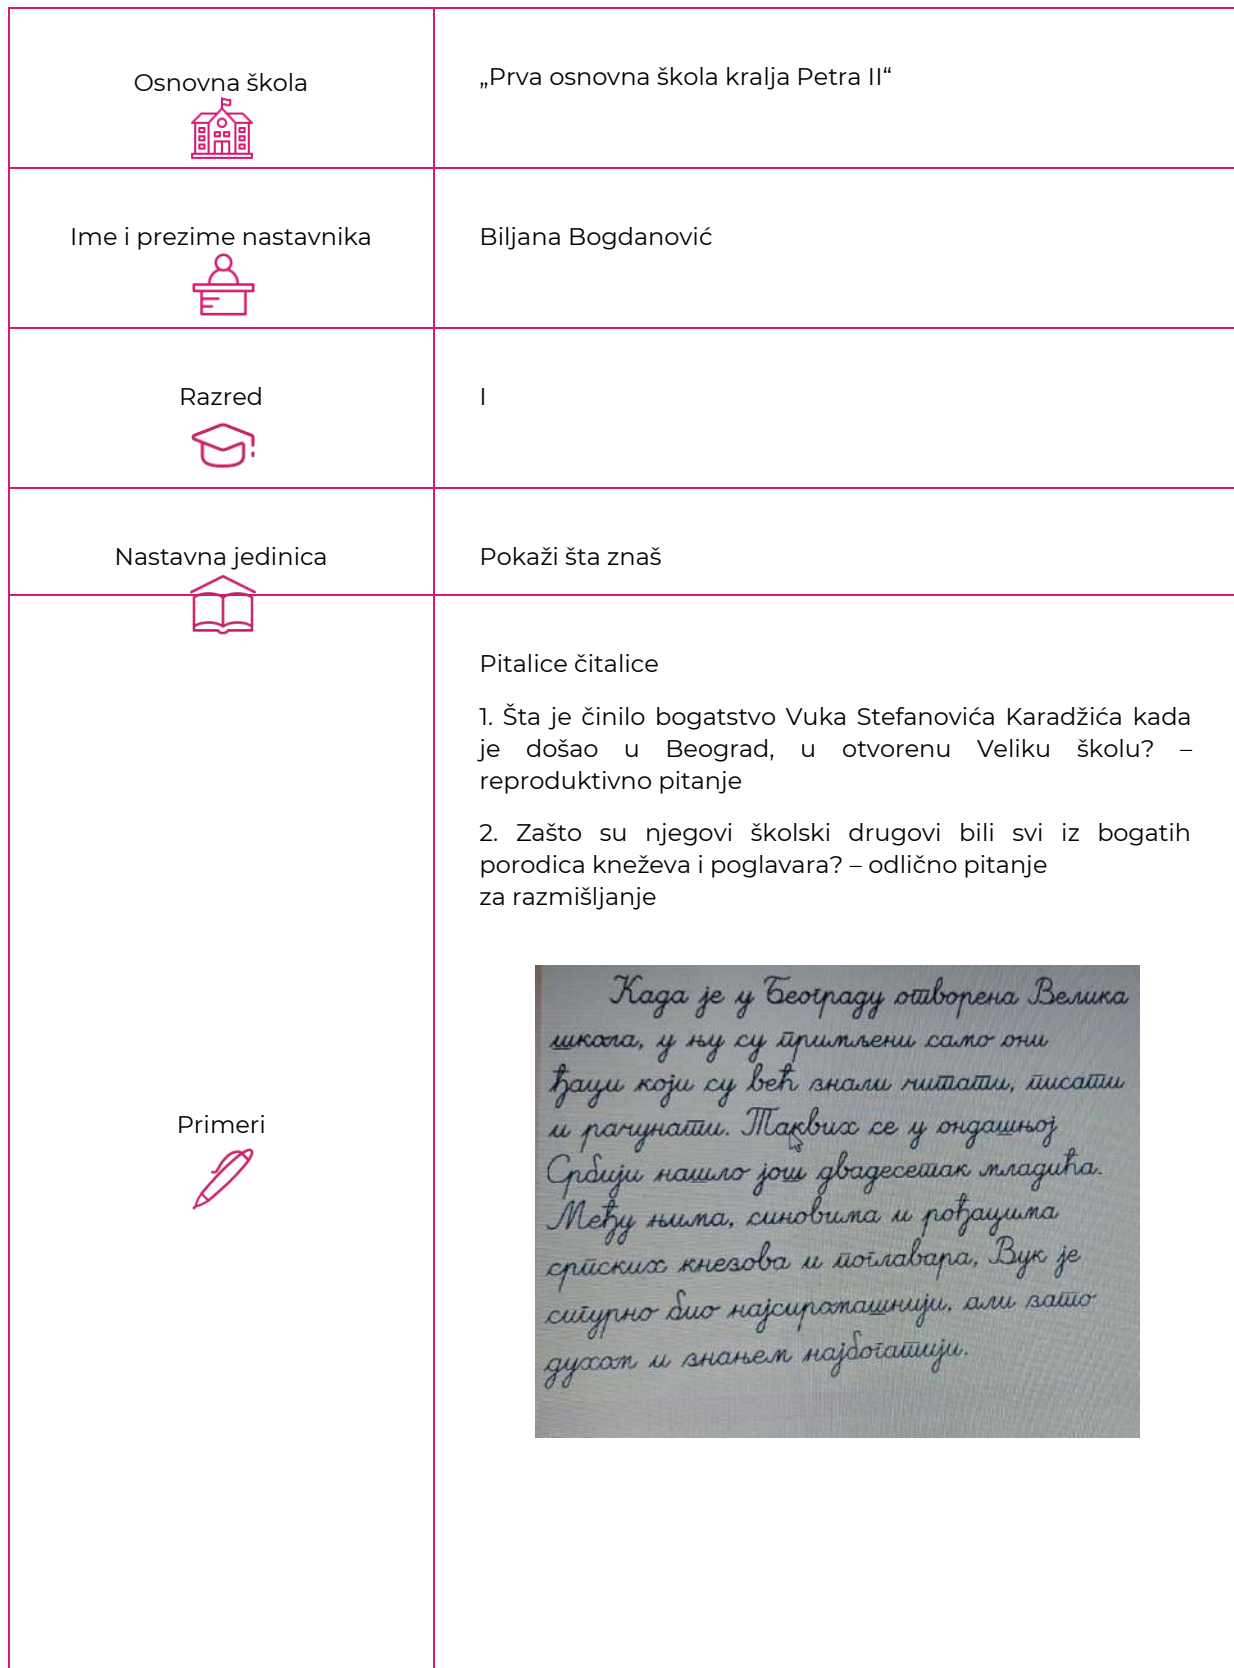 Osnovna škola
„Prva osnovna škola kralja Petra II“
Ime i prezime nastavnika
Biljana Bogdanović
Razred
I
Nastavna jedinica
Pokaži šta znaš
Primeri
Pitalice čitalice
1. Šta je činilo bogatstvo Vuka Stefanovića Karadžića kada
je došao u Beograd, u otvorenu Veliku školu? –
reproduktivno pitanje
2. Zašto su njegovi školski drugovi bili svi iz bogatih
porodica kneževa i poglavara? – odlično pitanje
za razmišljanje
Када је у Београду отворена Велика
школа, у њу су примљени само они
ђаци који су већ знали читати, писати
и рачунати. Таквих се у ондашњој
Србији нашло још двадесетак младића.
Међу њима, синовима и рођацима
српских кнезова и поглавара, Вук је
сигурно био најсиромашнији, али зато
духом и знањем најбогатији.